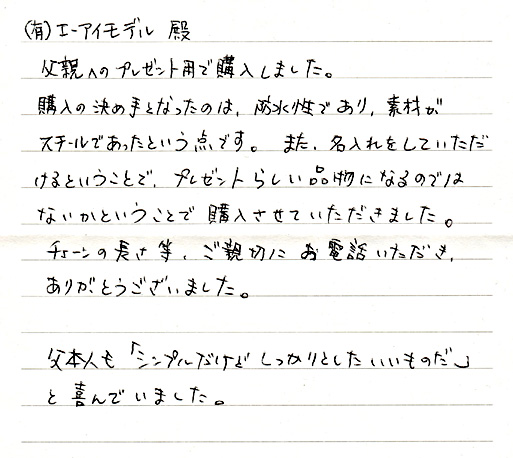 (有)エーアイモデル 殿
父親へのプレゼント用で購入しました。
購入の決め手となったのは、防水性であり、素材が
スチールであったという点です。また、名入れをしていただ
けるということで、プレゼントらしい品物になるのでは
ないかということで購入させていただきました。
チェーンの長さ等、ご親切にお電話いただき、
ありがとうございました。
父本人も「シンプルだけどしっかりとしたいいものだ」
と喜んでいました。